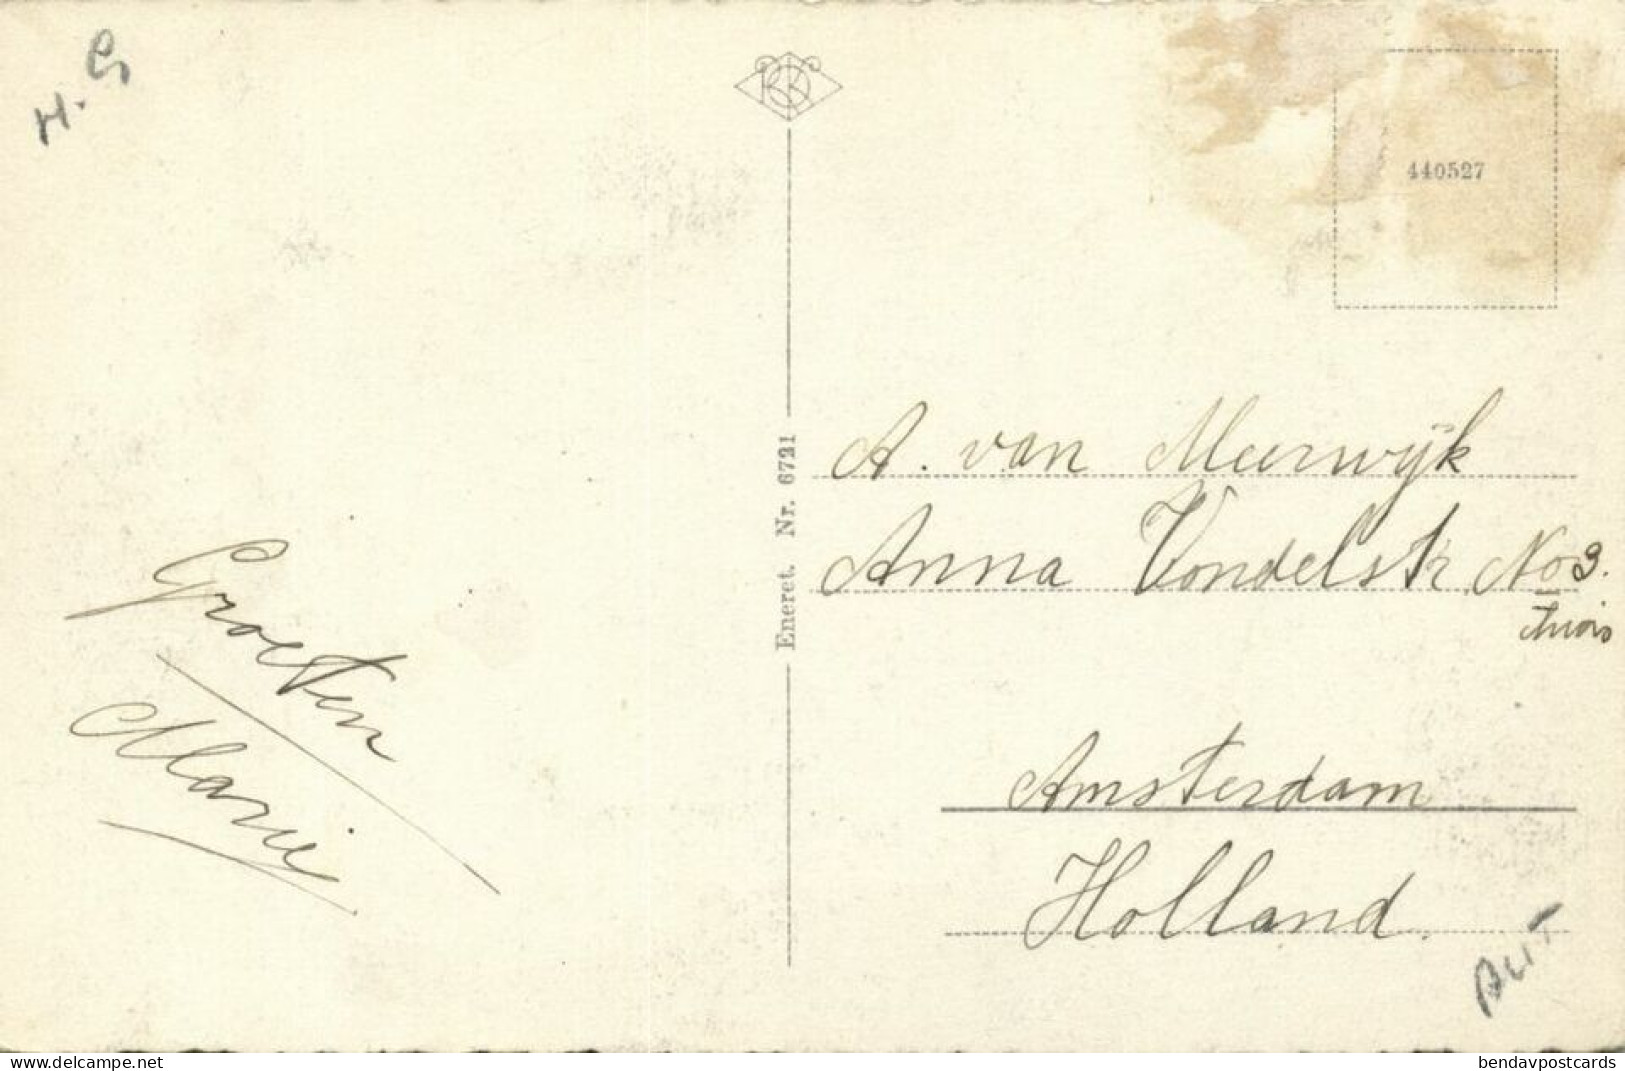 H. G
440527
Eneret. Nr. 6721
A. van Meerwijk
Anna Vondelstr. No 3.
thuis
Amsterdam
Holland.
Groeten
Marie
www.delcampe.net
bendavpostcards